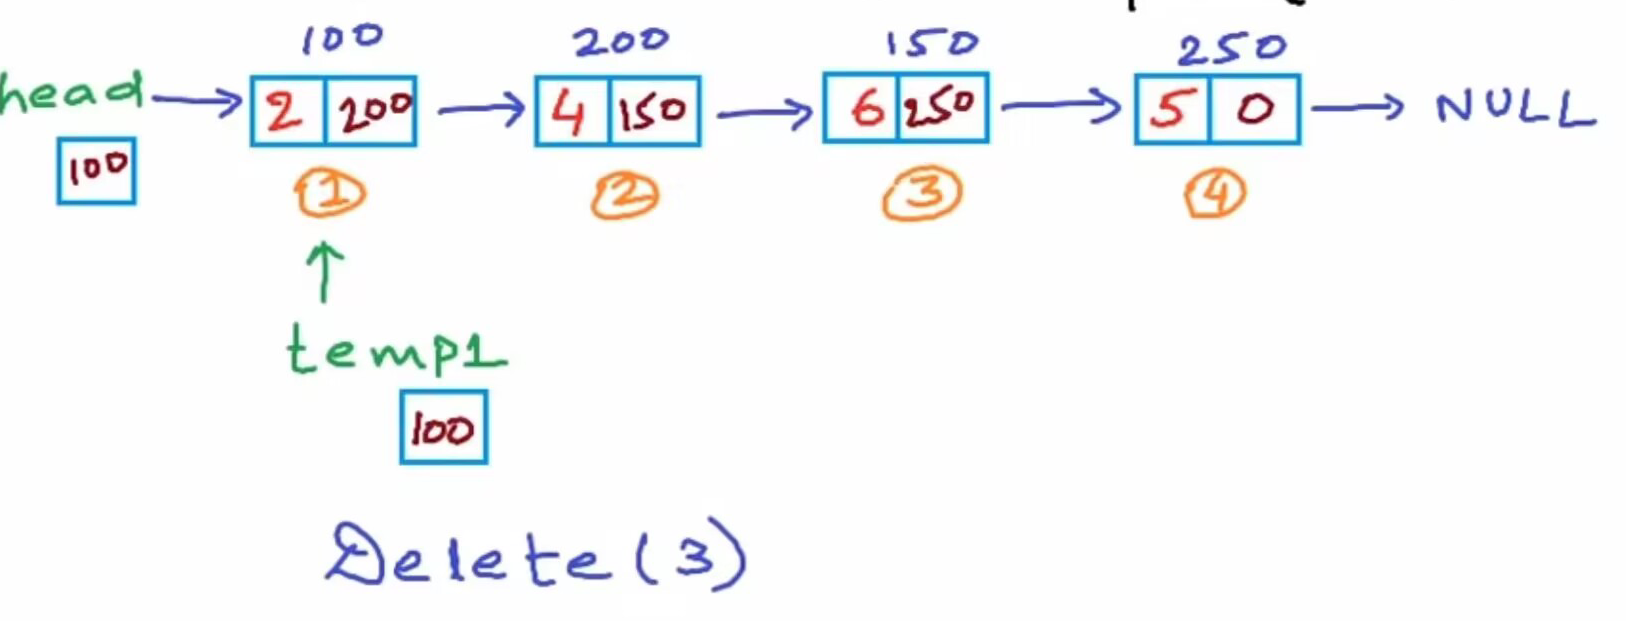 100 200 150 250
head 2 200 4 150 6 250 5 0 NULL
100
1 2 3 4
temp1
100
Delete(3)